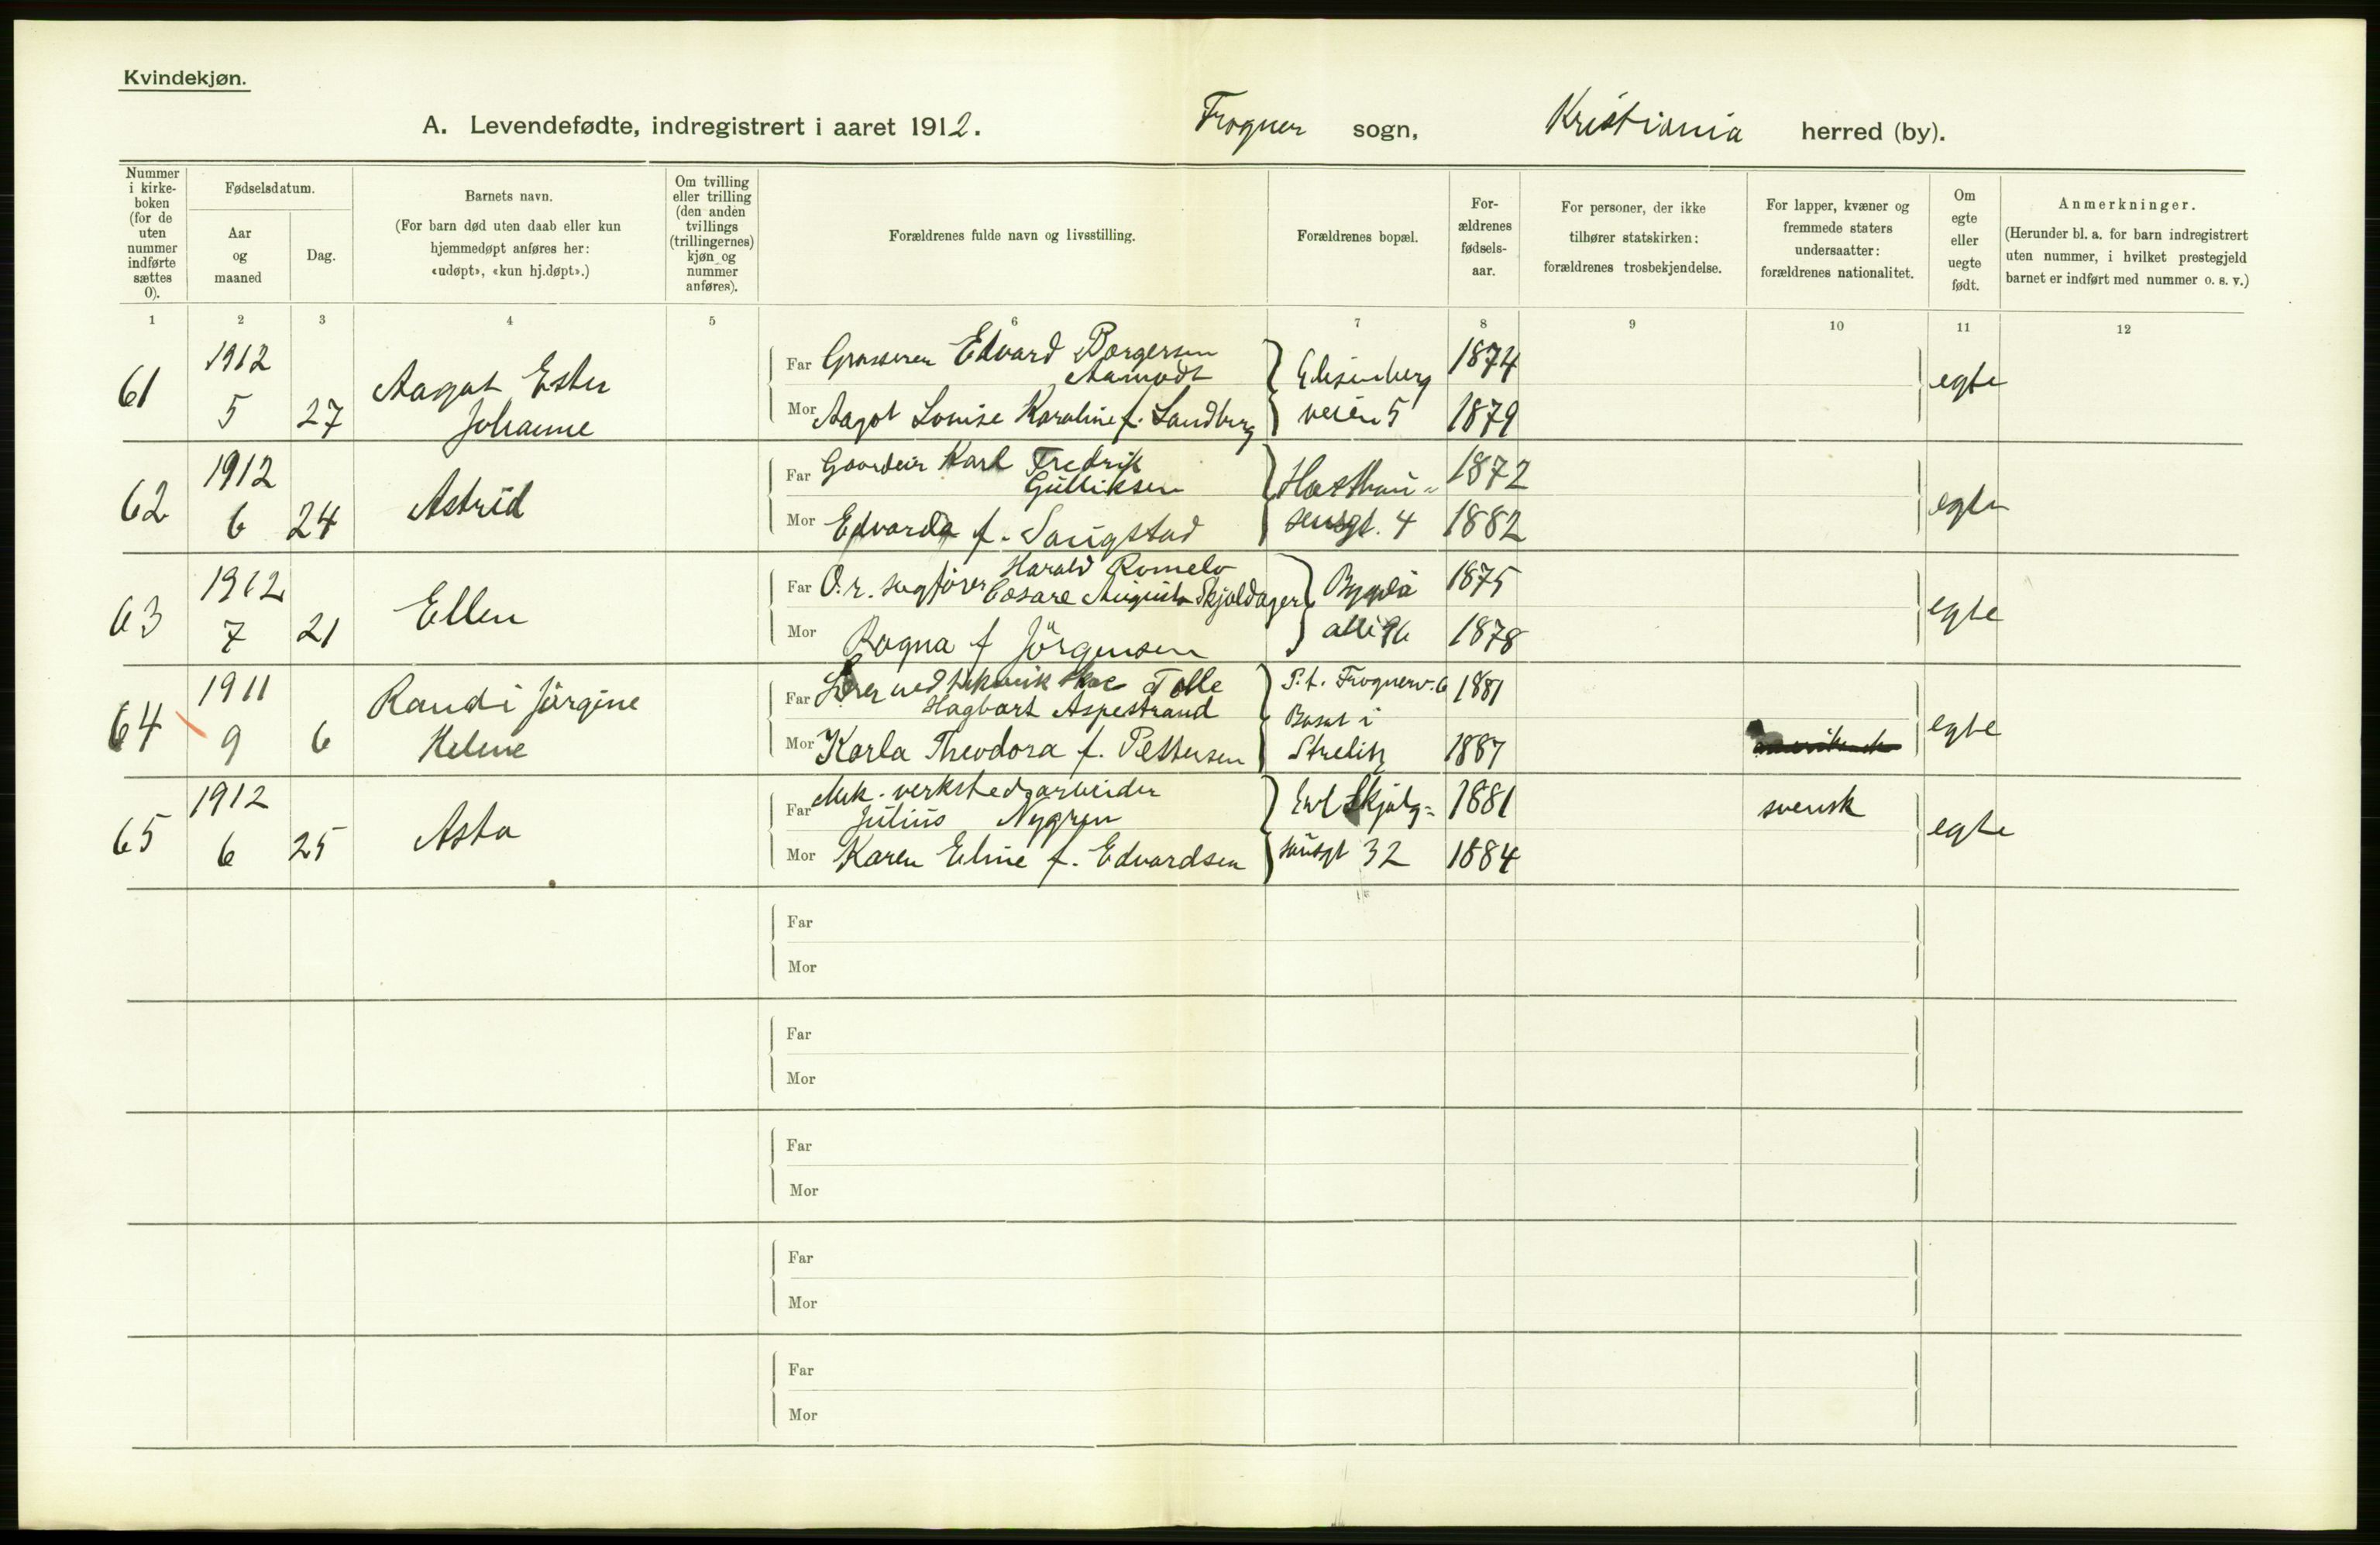 Kvindekjøn.
A. Levendefødte, indregistrert i aaret 1912.
Frogner sogn, Kristiania herred (by).
Nummer i kirkeboken (for de uten nummer indførte sættes 0).
Fødselsdatum.
Aar og maaned
Dag.
Barnets navn.
(For barn død uten daab eller kun hjemmedøpt anføres her: «udøpt», «kun hj.døpt».)
Om tvilling eller trilling (den anden tvillings (trillingernes) kjøn og nummer anføres).
Forældrenes fulde navn og livsstilling.
Forældrenes bopæl.
Forældrenes fødselsaar.
For personer, der ikke tilhører statskirken: forældrenes trosbekjendelse.
For lapper, kvæner og fremmede staters undersaatter: forældrenes nationalitet.
Om egte eller uegte født.
Anmerkninger.
(Herunder bl. a. for barn indregistrert uten nummer, i hvilket prestegjeld barnet er indført med nummer o. s. v.)
1 2 3 4 5 6 7 8 9 10 11 12
61 1912 5 27 Aagot Ester Johanne
Far Grosserer Edvard Borgersen Aamodt
Mor Aagot Lovise Karoline f. Sandberg
Elisenberg veien 5
1874
1879
egte
62 1912 6 24 Astrid
Far Karl Fredrik Gulliksen
Mor Edvarda f. Saugstad
sensgt. 4
1872
1882
egte
63 1912 7 21 Ellen
Far O.r. sagfører Harald Romelo Cæsare August Skjoldager
Mor Ragna f Jörgensen
Bygdø alle
1875
1878
egte
64 1911 9 6 Randi Jörgine Helene
Far Lærer ved teknisk Tolle Hagbart Aspestrand
Mor Karla Theodora f. Pettersen
P.t. Frognerv. 6
Bosat i
Strelitz
1881
1887
egte
65 1912 6 25 Asta
Far Mek. verkstedarbeider Julius Nygren
Mor Karen Eline f. Edvardsen
Erl Skjalg-
sønsgt 32
1881
1884
svensk
egte
Far
Mor
Far
Mor
Far
Mor
Far
Mor
Far
Mor